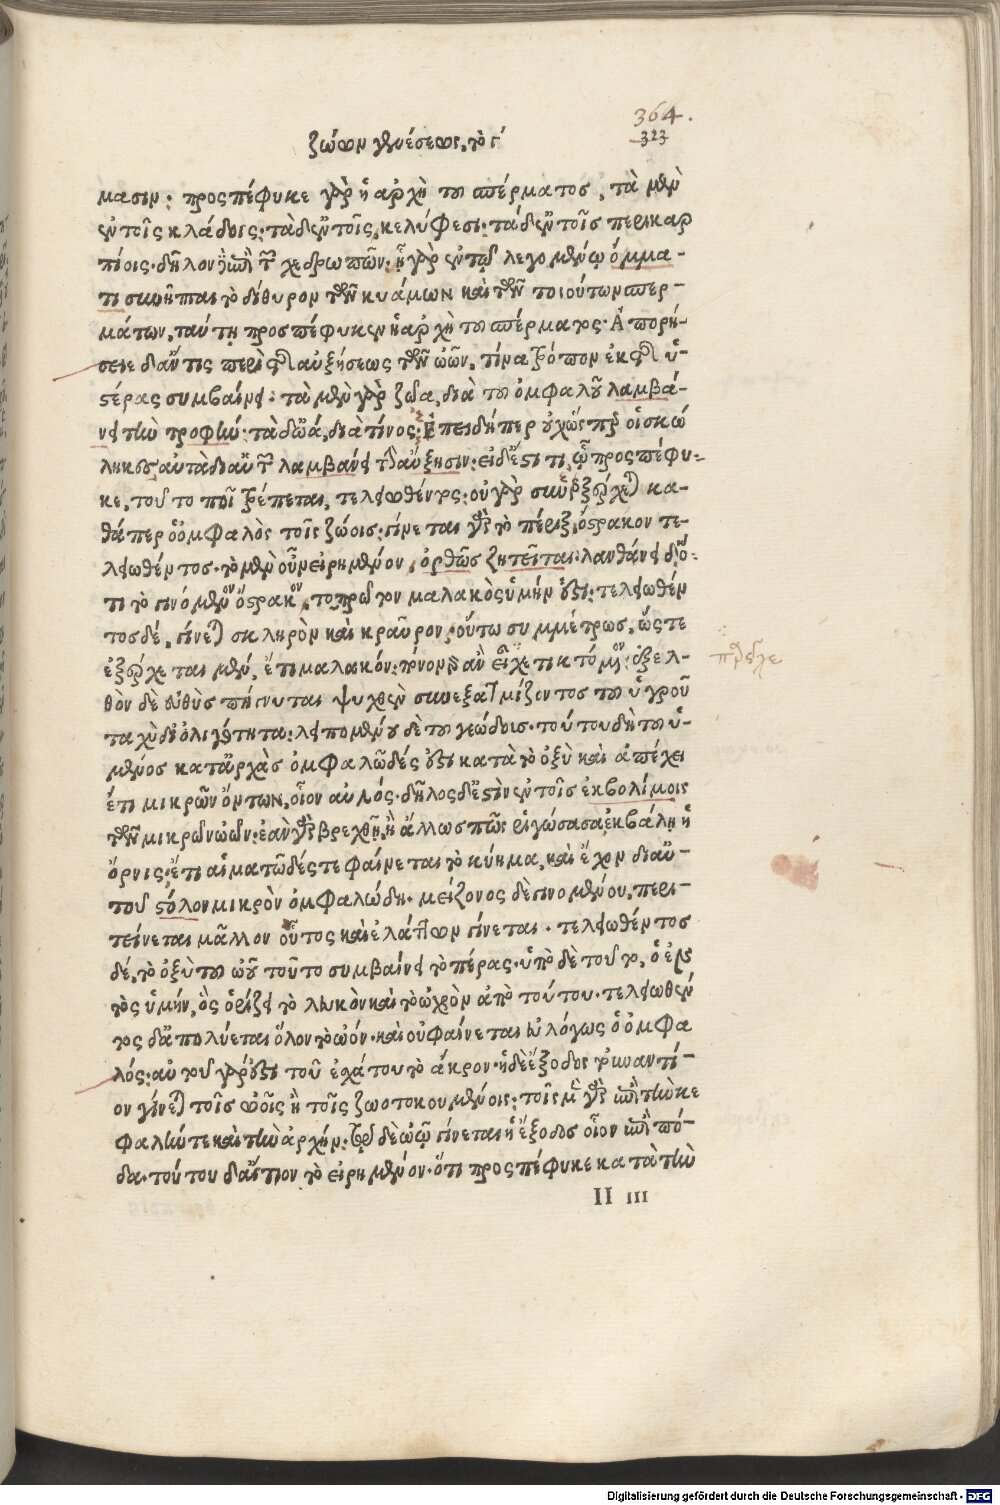 364.
323
ζώων γενέσεως, τὸ γ́
μασιν· προσπέφυκε γὰρ ἡ ἀρχὴ τοῦ σπέρματος, τὰ μὲν
ἐν τοῖς κλάδοις· τὰ δ' ἐν τοῖς κελύφεσι· τὰ δ' ἐν τοῖς περικαρ
πίοις· δῆλον δ' ἐπὶ τῶν χεδρωπῶν· ᾗ γὰρ ἐν τῷ λεγομένῳ ὄμμα-
τι συνῆπται τὸ δίθυρον τῶν κυάμων καὶ τῶν τοιούτων σπερ-
μάτων, ταύτῃ προσπέφυκεν ἡ ἀρχὴ τοῦ σπέρματος· Ἀπορή-
σειε δ' ἄν τις περὶ τῆς αὐξήσεως τῶν ὠῶν, τίνα τρόπον ἐκ τῆς ὑ-
στέρας συμβαίνει· τὰ μὲν γὰρ ζῶα, διὰ τοῦ ὀμφαλοῦ λαμβά-
νει τὴν τροφήν· τὰ δ' ὠά, διὰ τίνος; Ἐπειδήπερ οὐχ ὥσπερ οἱ σκώ
ληκες αὐτὰ δι' αὑτῶν λαμβάνει τὴν αὔξησιν· εἰ δ' ἔστι τι, ᾧ προσπέφυ-
κε, τοῦτο ποῖ τρέπεται, τελειωθέντος· οὐ γὰρ συνεξέρχεται κα-
θάπερ ὁ ὀμφαλὸς τοῖς ζώοις· γίνεται γὰρ τὸ πέριξ ὄστρακον τε-
λειωθέντος· τὸ μὲν οὖν εἰρημένον, ὀρθῶς ζητεῖται· λανθάνει δ' ὅ-
τι τὸ γινόμενον ὄστρακον, τοπρῶτον μαλακὸς ὑμήν ἐστι· τελειωθέν
τος δέ, γίνεται σκληρὸν καὶ κραῦρον· οὕτω συμμέτρως, ὥστε
ἐξέρχεται μέν, ἔτι μαλακόν· πόνον γὰρ ἂν εἶχε τικτόμενον· ἐξελ-
θὸν δὲ εὐθὺς πήγνυται ψυχθὲν συνεξατμίζοντος τοῦ ὑγροῦ
ταχὺ δι' ὀλιγότητα· λειπομένου δὲ τοῦ γεώδους· τούτου δὴ τοῦ ὑ-
μένος κατ' ἀρχὰς ὀμφαλῶδές ἐστι κατὰ τὸ ὀξὺ καὶ ἀπέχει
ἔτι μικρῶν ὄντων, οἷον αὐλός· δῆλος δ' ἔστιν ἐν τοῖς ἐκβολίμοις
τῶν μικρῶν ὠῶν· ἐὰν γὰρ βρεχθῇ, ἢ ἄλλως πῶς ῥιγώσασα ἐκβάλῃ ἡ
ὄρνις, ἔτι αἱματῶδές τε φαίνεται τὸ κύημα, καὶ ἔχον δι' αὑ-
τοῦ στόλον μικρὸν ὀμφαλώδη· μείζονος δὲ γινομένου, περι-
τείνεται μᾶλλον οὗτος καὶ ἐλάττων γίνεται· τελειωθέντος
δέ, τὸ ὀξὺ τοῦ ὠοῦ τοῦτο συμβαίνει τὸ πέρας· ὑπὸ δὲ τοῦτο, ὁ ἐντ
τὸς ὑμήν, ὃς ὁρίζει τὸ λευκὸν καὶ τὸ ὠχρὸν ἀπὸ τούτου· τελειωθέν
τος δ' ἀπολύεται ὅλον τὸ ὠόν· καὶ οὐ φαίνεται εὐλόγως ὁ ὀμφα
λός· αὐτοῦ γάρ ἐστι τοῦ ἐχάτου τὸ ἄκρον· ἡ δὲ ἔξοδος τοὐναντί-
ον γίνεται τοῖς ὠοῖς ἢ τοῖς ζωοτοκουμένοις· τοῖς μὲν γὰρ ἐπὶ τὴν κε
φαλήν τε καὶ τὴν ἀρχήν· τῷ δὲ ὠῷ γίνεται ἡ ἔξοδος οἷον ἐπὶ πό-
δα· τούτου δ' αἴτιον τὸ εἰρημένον· ὅτι προσπέφυκε κατὰ τὴν
II iii
Digitalisierung gefördert durch die Deutsche Forschungsgemeinschaft - DFG